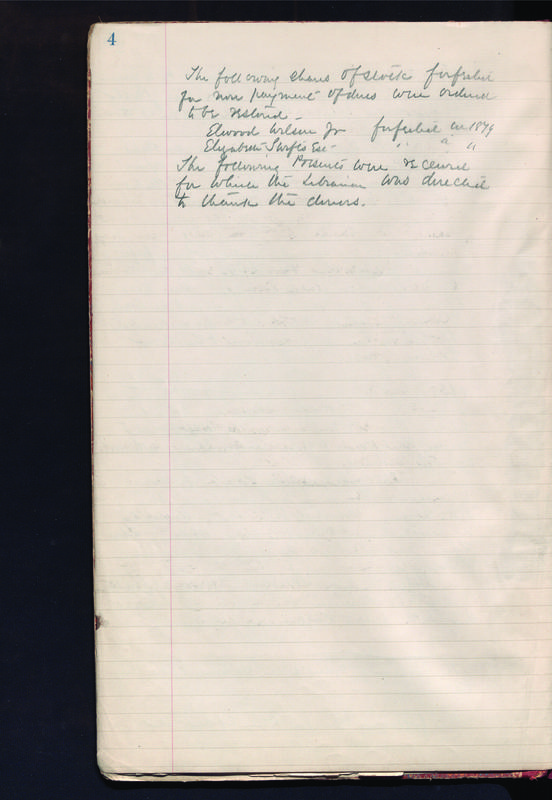 4
The following shares of stock forfeited
for non payment of dues were ordered
to be restored -
Elwood Wilson Jr forfeited in 1879
Elizabeth Est - " " "
The following Presents were received
for which the Librarian was directed
to thank the donors.